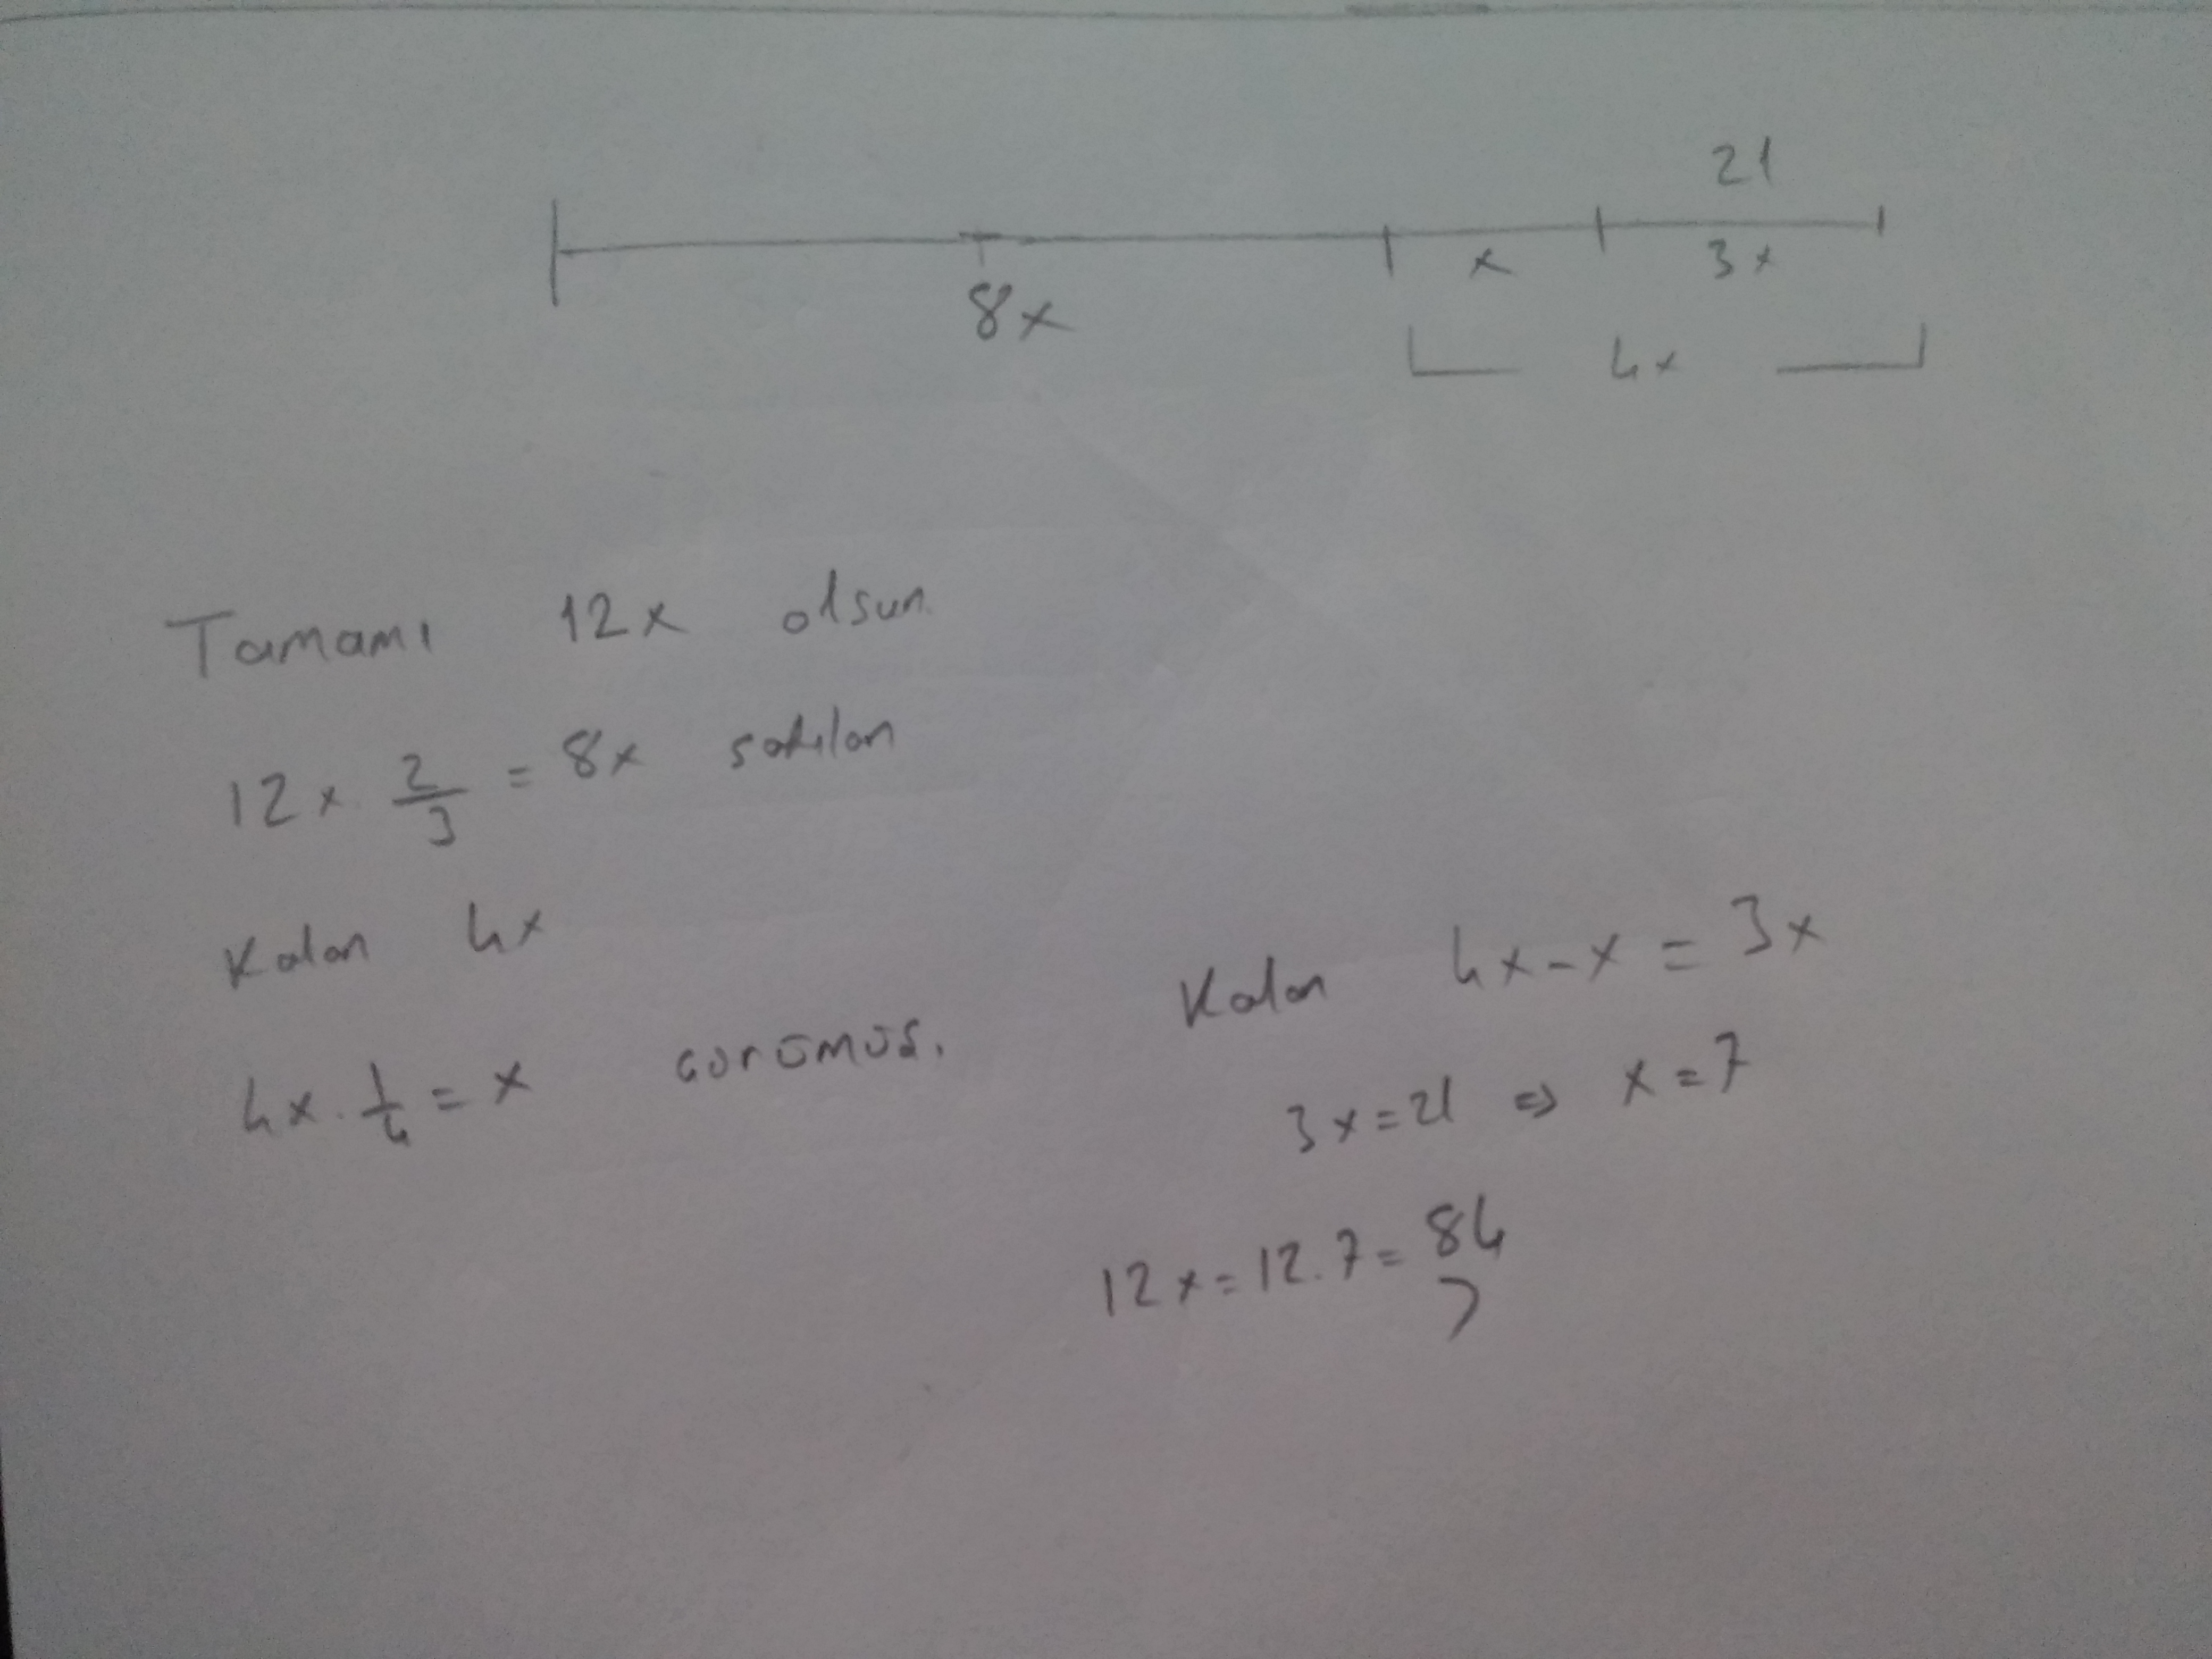 21
8x x 3x
4x
Tamamı 12x olsun
12x 2/3 = 8x satılan
Kalan 4x
4x . 1/4 = x çürümüş.
Kalan 4x - x = 3x
3x = 21 => x = 7
12x = 12.7 = 84